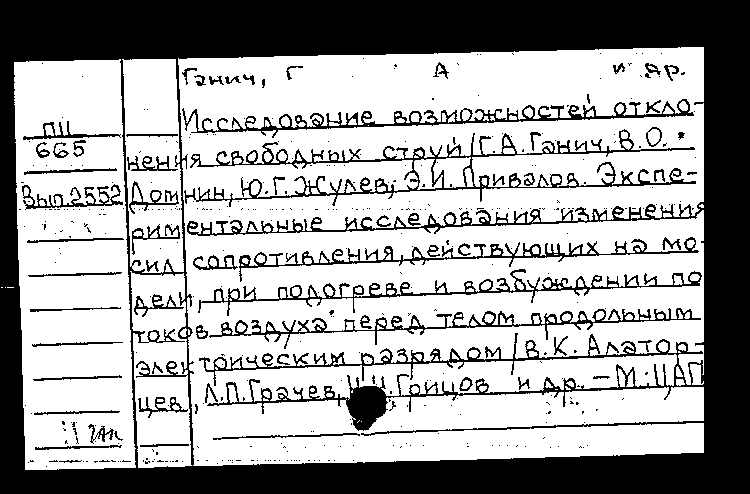 Ганич, Г А и др.
Исследование возможностей откло-
ПЦ
665
нения свободных струй / Г.А. Ганич, В.О.
Вып. 2552
Домнин, Ю.Г. Жулев, Э.И. Привалов. Экспе-
риментальные исследования изменения
сил сопротивления, действующих на мо-
дели, при подогреве и возбуждении по
токов воздуха перед телом продольным
электрическим разрядом / В.К. Алатор-
цев, Л.П. Грачев, Грицов и др. – М.: ЦАГИ